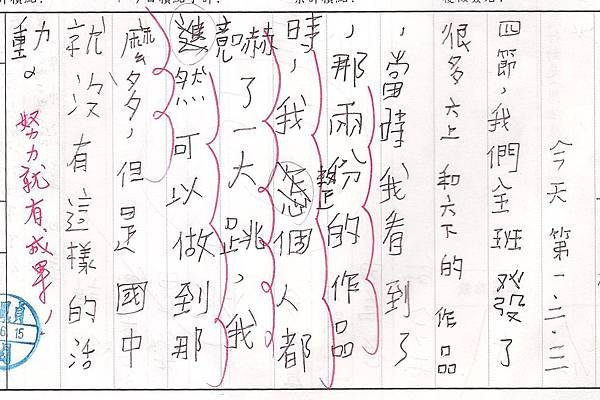 今天第一、二、三
四節，我們全班發了
很多六上和六下的作品
，當時我看到了
，那兩份的作品
時，我整個人都
赫了一大跳，我
竟然可以做到那
麼多，但是國中
就沒有這樣的活
動。努力就有成果！